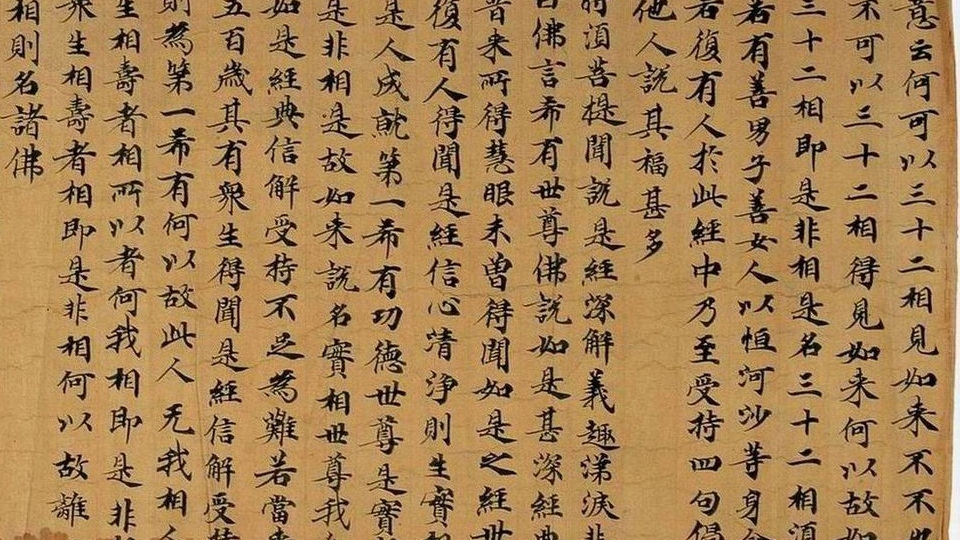 意云何可以三十二相見如来不不也
不可以三十二相得見如来何以故如
三十二相即是非相是名三十二相須
若有善男子善女人以恒河沙等身命
若復有人於此經中乃至受持四句偈
他人說其福甚多
時須菩提聞說是經深解義趣涕淚悲
白佛言希有世尊佛說如是甚深經典
昔来所得慧眼未曽得聞如是之經世
復有人得聞是經信心清淨則生實
是人成就第一希有功德世尊是實
是非相是故如来說名實相世尊我
如是經典信解受持不乏為難若當来
五百歲其有衆生得聞是經信解受持
則為第一希有何以故此人无我相人
生相壽者相所以者何我相即是非
衆生相壽者相即是非相何以故離
相則名諸佛